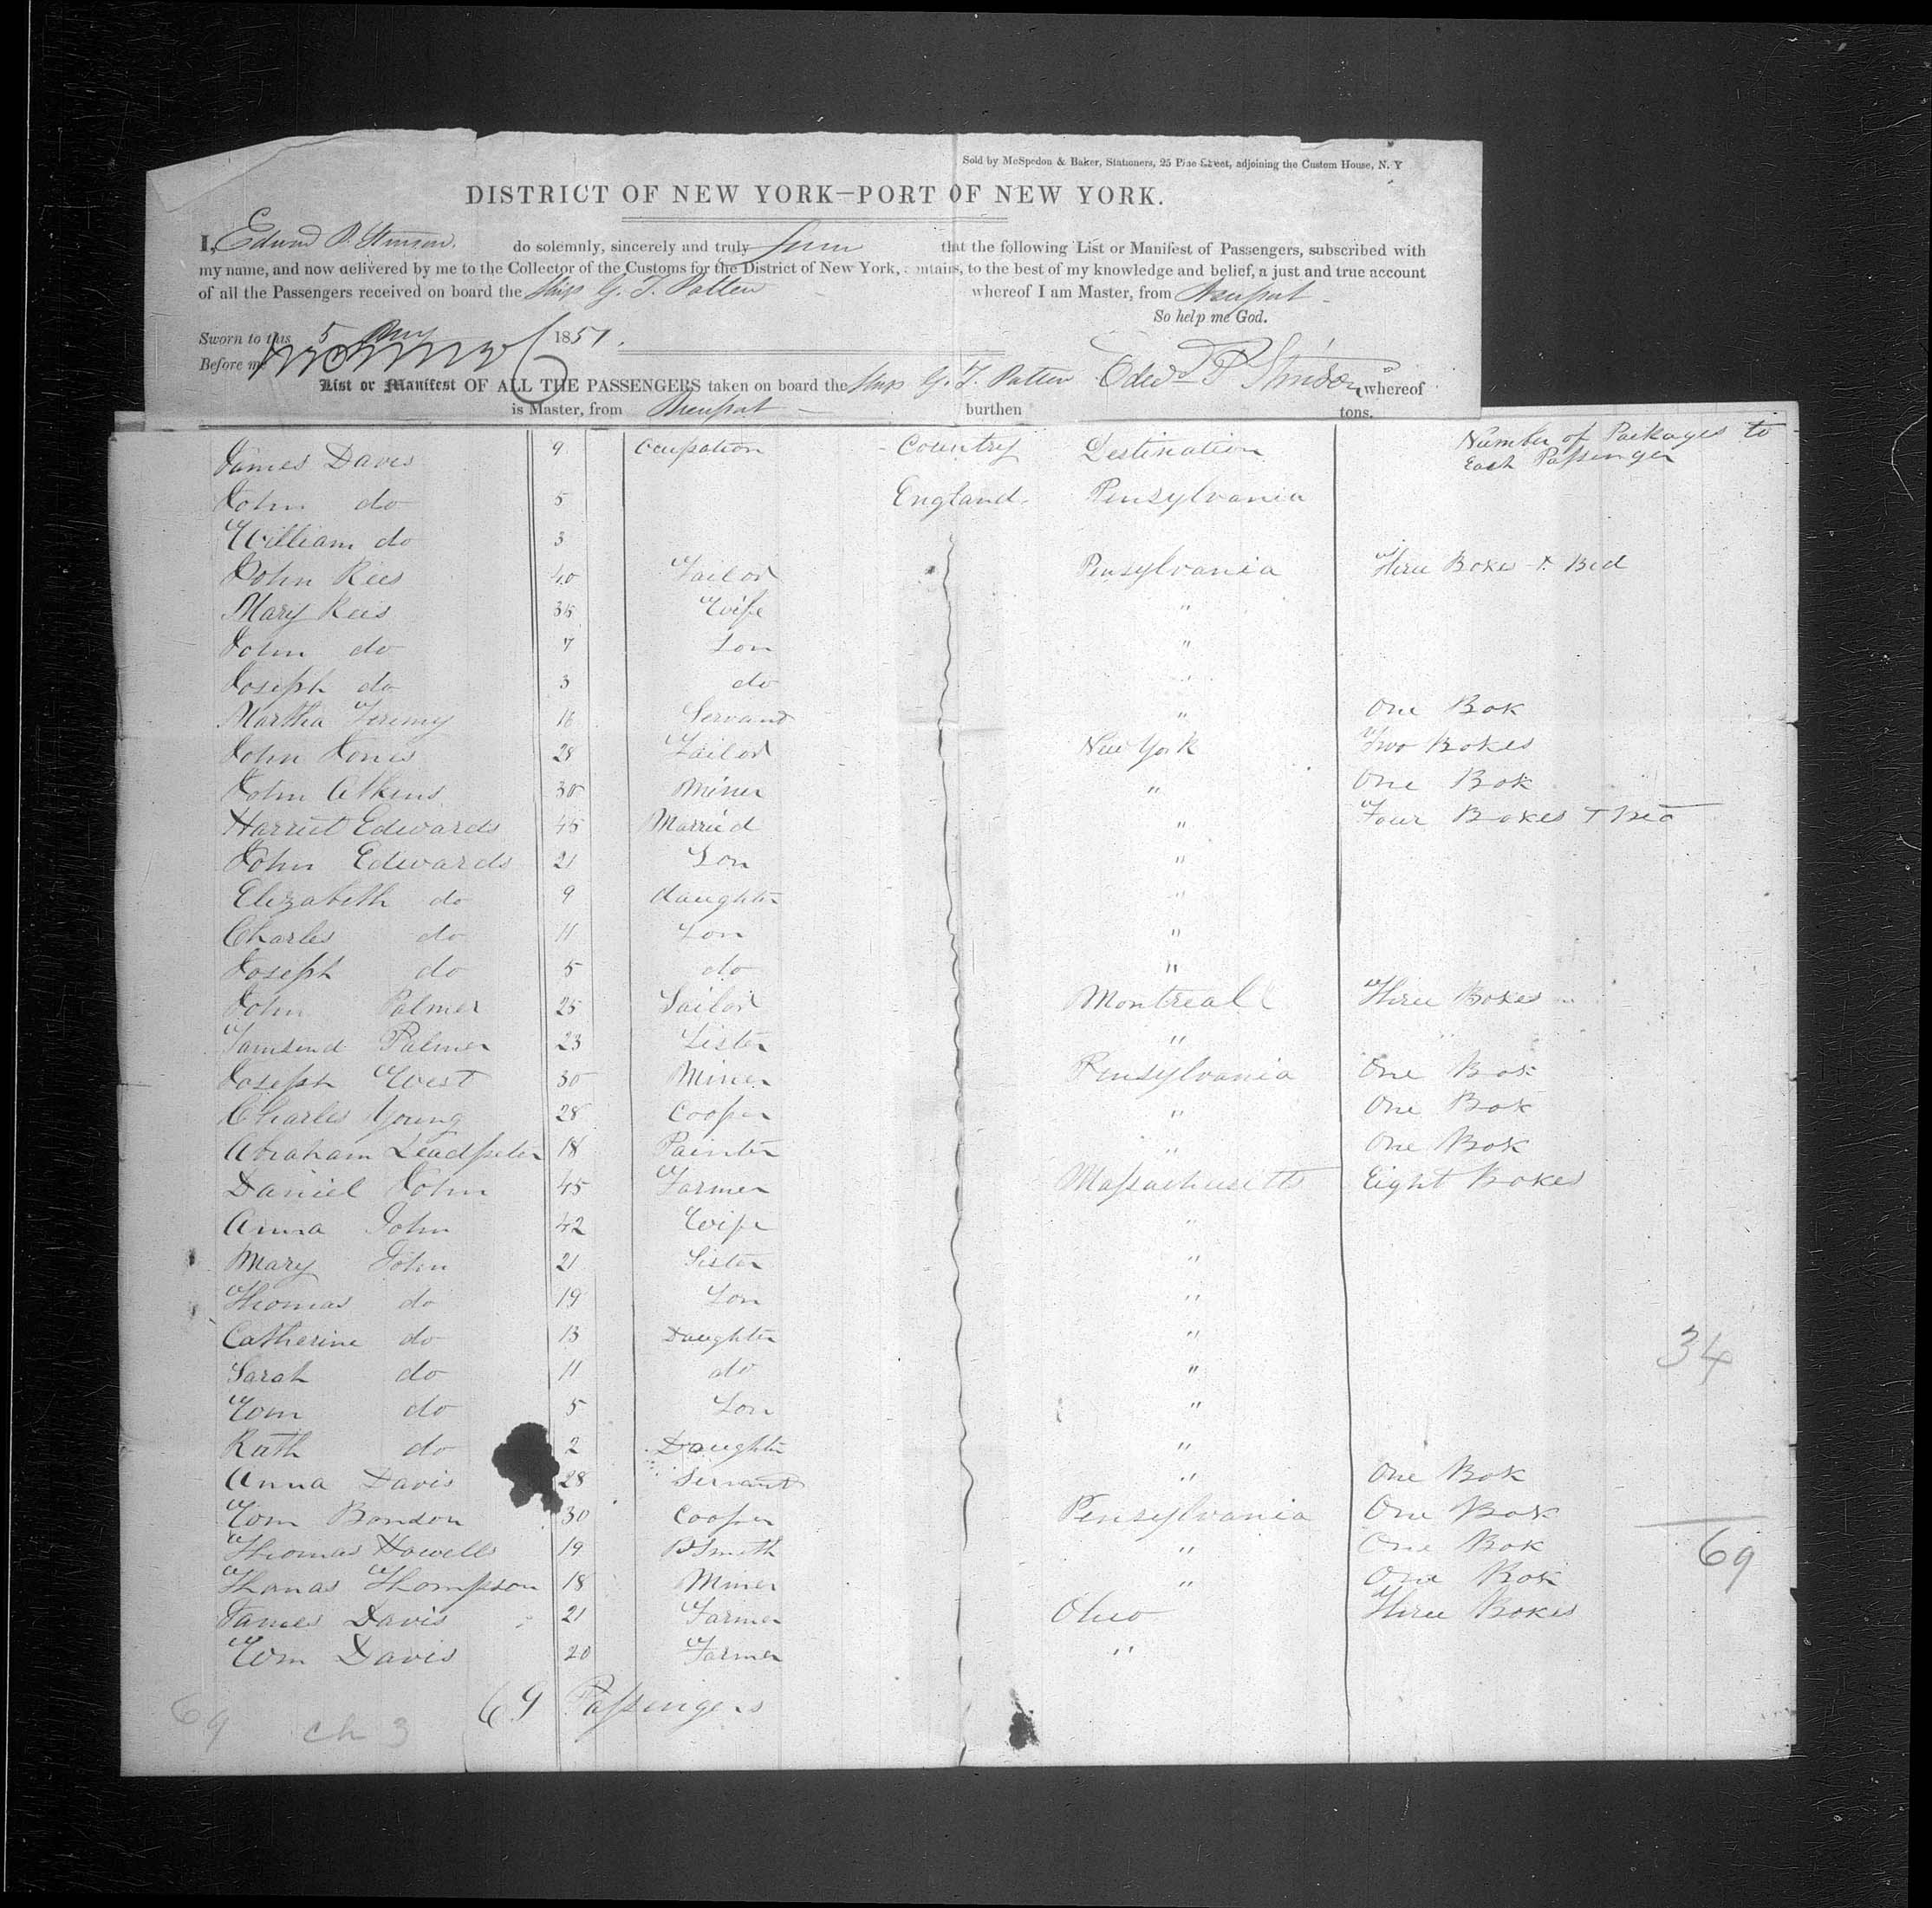 Sold by McSpedon & Baker, Stationers, 25 Pine Street, adjoining the Custom House, N. Y
DISTRICT OF NEW YORK—PORT OF NEW YORK.
I, Edward P. Stinson. do solemnly, sincerely and truly that the following List or Manifest of Passengers, subscribed with
my name, and now delivered by me to the Collector of the Customs for the District of New York, contains, to the best of my knowledge and belief, a just and true account
of all the Passengers received on board the Ship G. F. Patten whereof I am Master, from Newport
So help me God.
Sworn to this 5 1851.
Before me
List or Manifest OF ALL THE PASSENGERS taken on board the Ship G. F. Patten Edwd P Stinson whereof
is Master, from burthen tons.
James Davis 9 Ocupation Country Destination Number of Packages to Each Passenger
John do 5 England Pensylvania
William do 3
John Rees 40 Tailor Pensylvania Three Boxes & Bed
Mary Rees 35 Wife "
John do 7 Son "
Joseph do 3 do "
Martha Jeremy 16 Servant " One Box
John Jones 28 Tailor New York Two Boxes
John Atkins 30 Miner " One Box
Harriet Edwards 45 Married " Four Boxes & Bed
John Edwards 21 Son "
Elizabeth do 9 daughter "
Charles do 11 Son "
Joseph do 5 do "
John Palmer 25 Sailor Montreal Three Boxes
Palmer 23 Sister "
Joseph West 30 Miner Pensylvania One Box
Charles Young 28 Cooper " One Box
Abraham Leadpeter 18 Painter " One Box
Daniel John 45 Farmer Massachusetts Eight Boxes
Anna John 42 Wife "
Mary John 21 Sister "
Thomas do 19 Son "
Catherine do 13 Daughter "
Sarah do 11 do " 34
Wm do 5 Son "
Ruth do 2 Daughter "
Anna Davis 28 Servant " One Box
Wm Bondon 30 Cooper Pensylvania One Box
Thomas Howells 19 BSmith " One Box 69
Thomas Thompson 18 Miner " One Box
James Davis 21 Farmer Ohio Three Boxes
Wm Davis 20 Farmer "
69 Passengers
69 ch 3